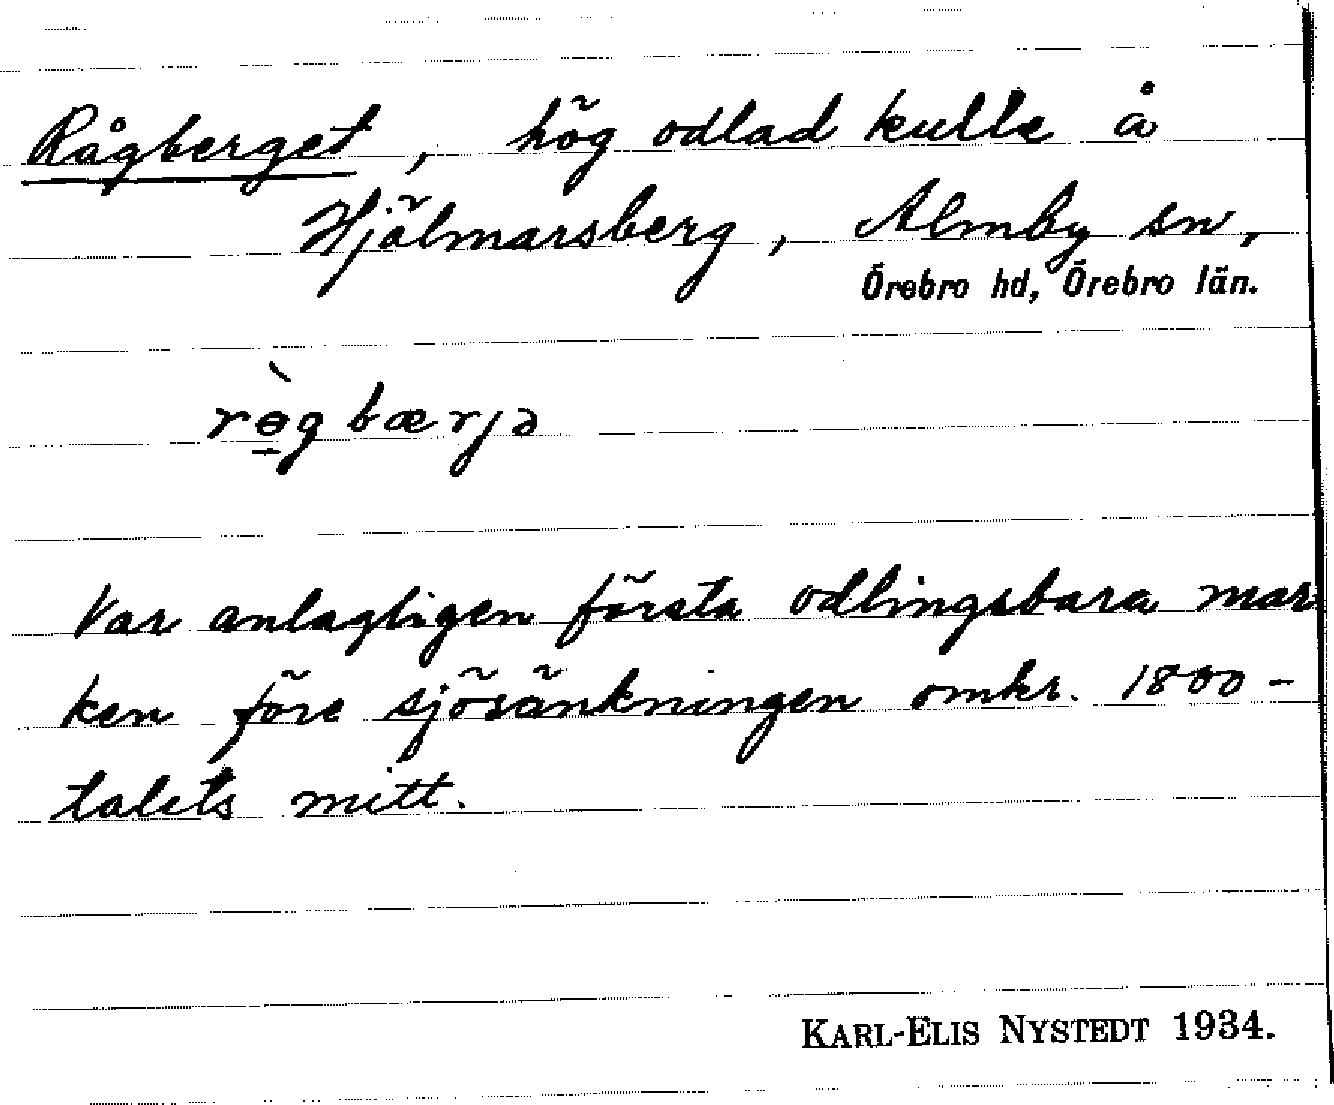 Rågberget, hög odlad kulle å
Hjälmarsberg, Almby sn,
Örebro hd, Örebro län.
rө̀gbærjə
Var anlagligen första odlingsbara mar
ken före sjösänkningen omkr. 1800-
talets mitt.
KARL-ELIS NYSTEDT 1934.